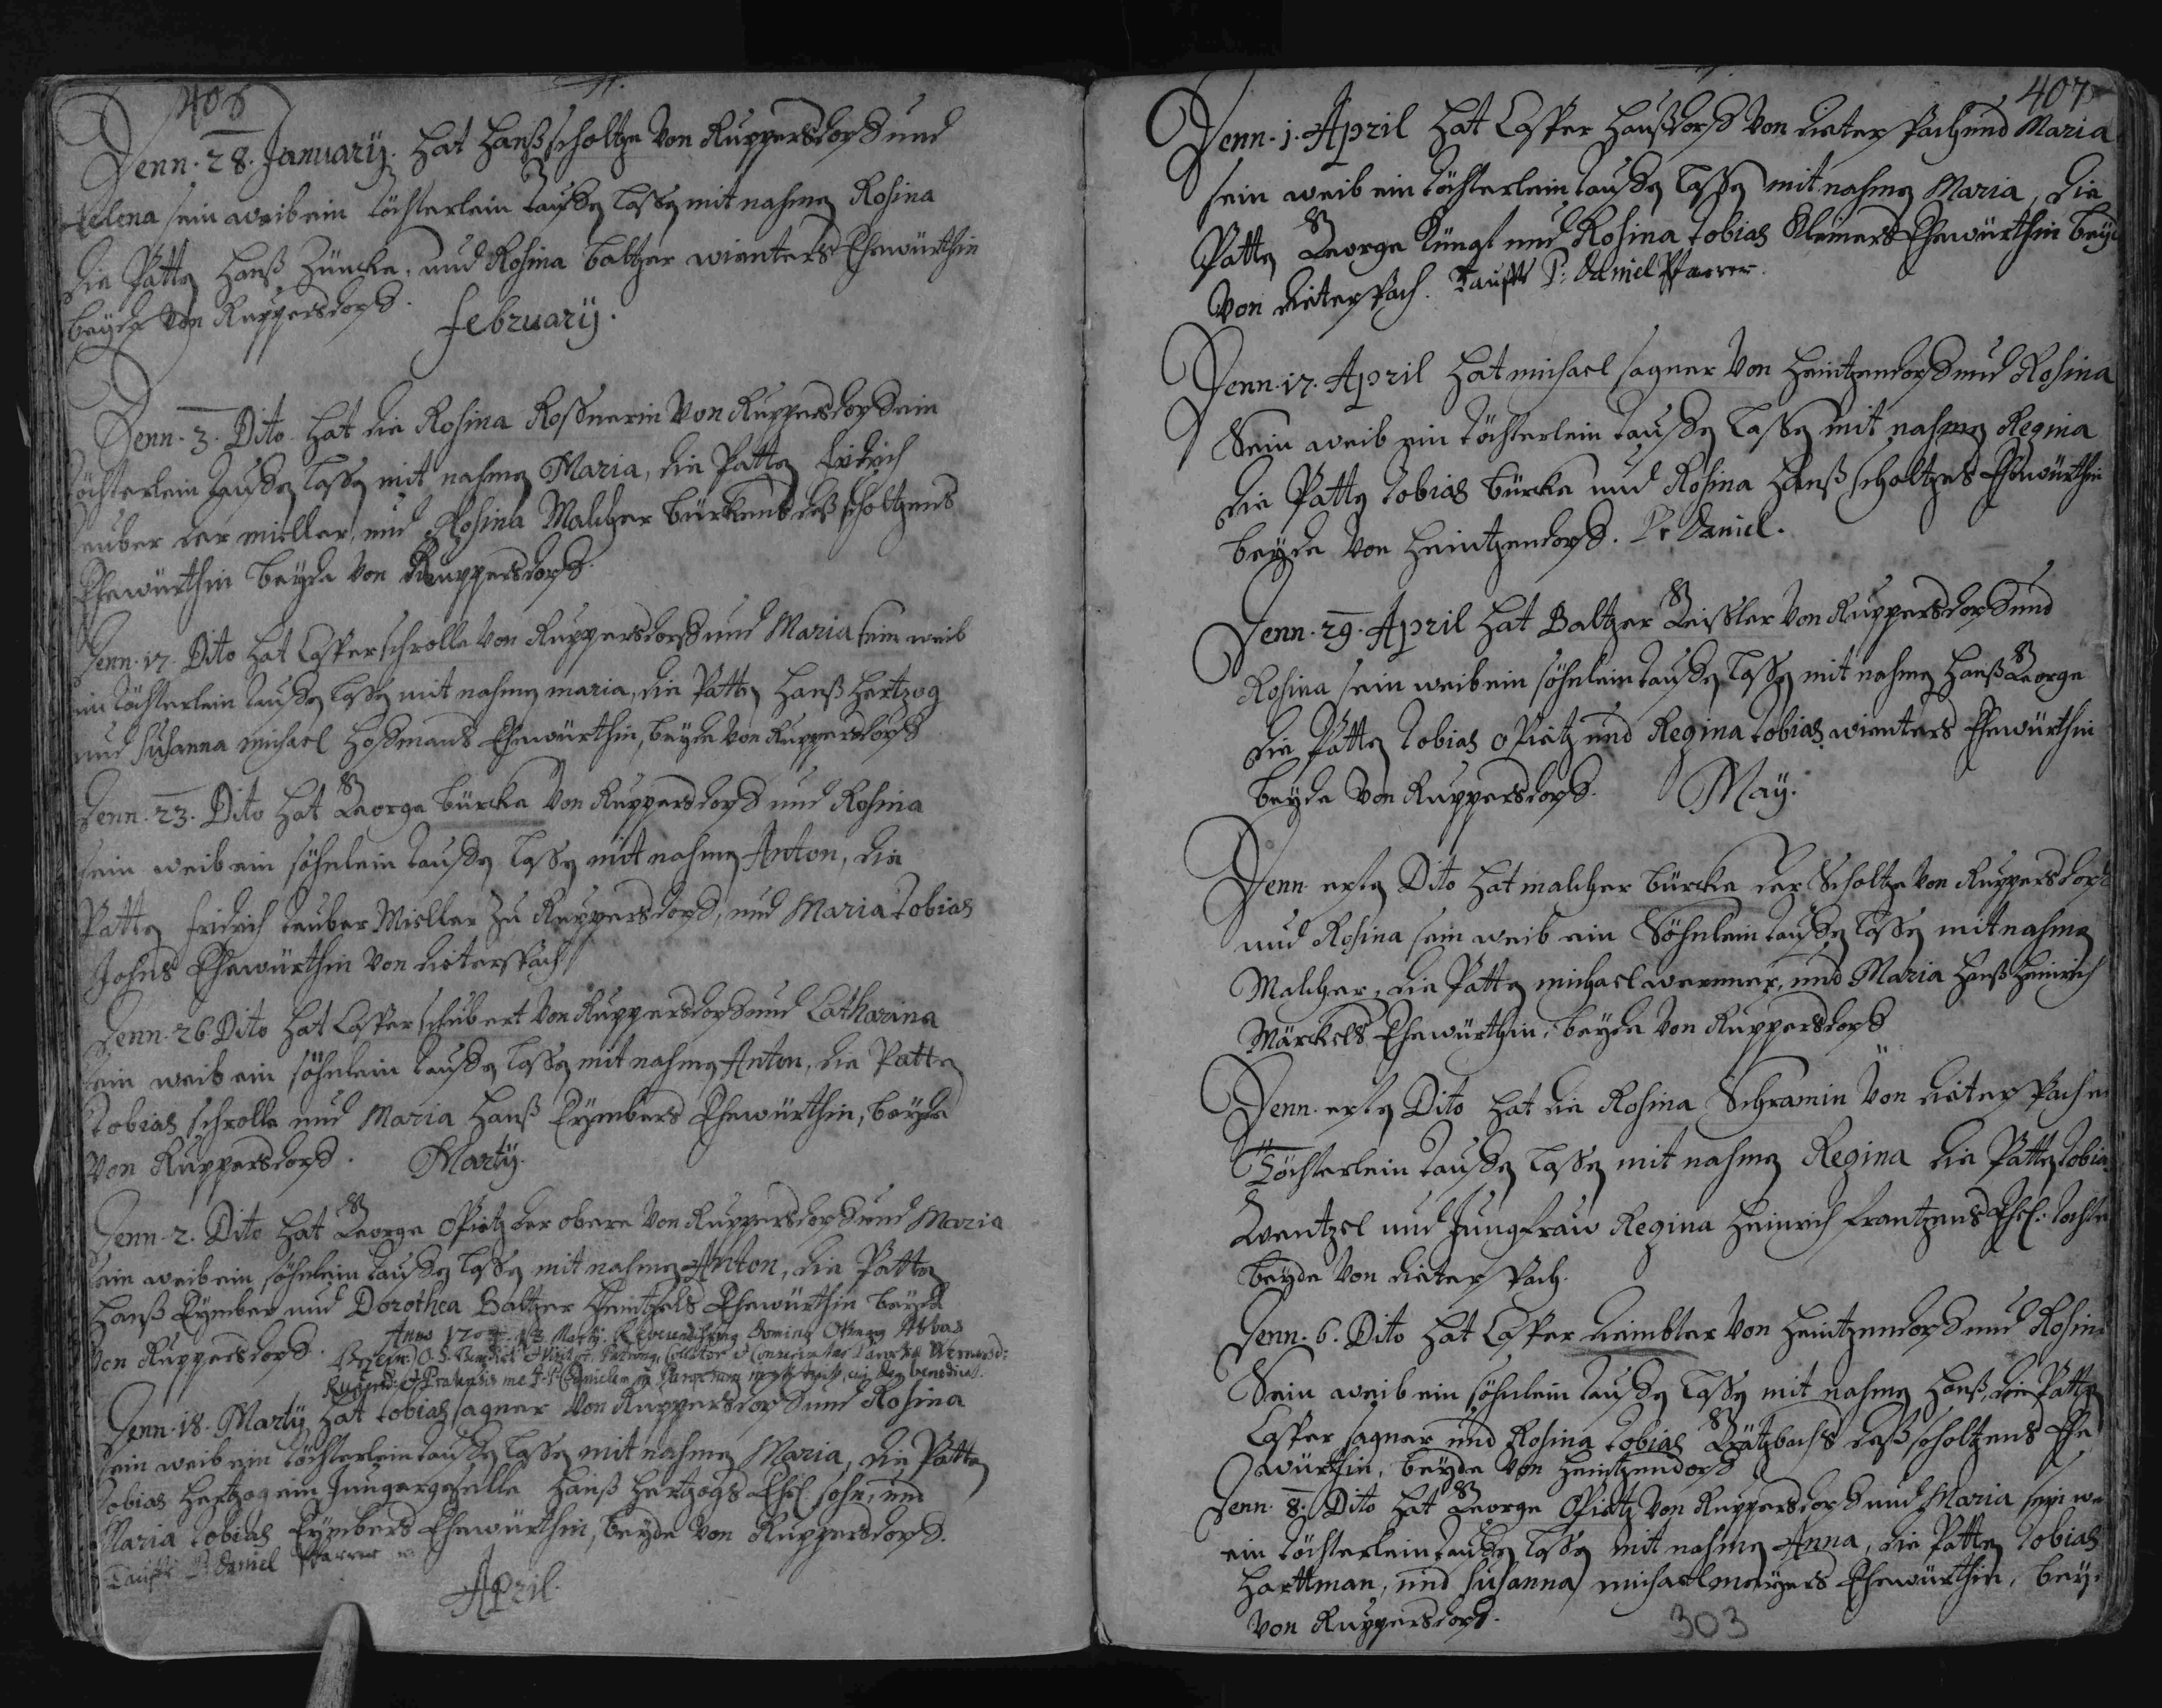 406
Denn. 28. Januarÿ. hat Hanß scholtze Von Ruppersdorff und
Helena sein weib ein töchterlein tauffen lassen mit nahmen Rosina
die Patten Hanß Züncke, und Rosina Baltzer wienters Ehewürthin
beÿde Von Ruppersdorff.
Februarÿ.
Denn. 3. Dito hat die Rosina Rossnerin Von Ruppersdorff ein
töchterlein tauffen lassen mit nahmen Maria, die Patten fridrich
teuber der miller, und Rosina Malcher bürkens deß scholtzens
Ehewürthin beÿde Von Ruppersdorff.
Denn. 17. Dito hat Casper schrolle Von Ruppersdorff und Maria sein weib
ein töchterlein tauffen lassen mit nahmen maria, die Patten Hanß Hertzog
und susanna michael hoffmans Ehewürthin, beÿde Von Ruppersdorff
Denn. 23. Dito hat George bürcke Von Ruppersdorff und Rosina
sein weib ein söhnlein tauffen lassen mit nahmen Anton, die
Patten fridrich teuber Miller zu Ruppersdorff, und Maria tobias
Johns Ehewürthin Von dieterspach
Denn. 26. Dito hat Casper schubert Von Ruppersdorff und Catharina
sein weib ein söhnlein tauffen lassen mit nahmen Anton, die Patten
tobias schrolle und Maria Hanß Rÿmbers Ehewürthin, beÿde
Von Ruppersdorff. Martÿ.
Denn. 2. Dito hat George Opietz der obere Von Ruppersdorff und Maria
sein weib ein söhnlein tauffen lassen mit nahmen Anton, die Patten
Hanß Rÿmber und Dorothea Baltzer Heintzels Ehewürthin beÿde
Von Ruppersdorff. Anno 13 Martÿ. Reverendissimus Dominus Abbas
O. S. Benedict Collator
me P. Danielem
Denn. 18. Martÿ hat tobias sagner Von Ruppersdorff und Rosina
sein weib ein töchterlein tauffen lassen mit nahmen Maria, die Patten
tobias Hertzog ein Jungergeselle Hanß Hertzogs Ehel. sohn, und
Maria tobias Rÿmbers Ehewürthin, beÿde Von Ruppersdorff.
Taufft P. Daniel Pfarrer
April.
407
Denn. 1. April hat Casper Haußdorff Von dieterspach und Maria
sein weib ein töchterlein tauffen lassen mit nahmen Maria, die
Patten George Küngl und Rosina tobias Klemers Ehewürthin beÿde
Von dieterspach. Taufft P: Daniel Pfarrer.
Denn. 17. April hat michael sagner Von Heintzendorff und Rosina
Sein weib ein töchterlein tauffen lassen mit nahmen Regina
die Patten tobias bürcke und Rosina Hanß scholtzes Ehewürthin
beÿde Von Heintzendorff. Pr Daniel.
Denn. 29. April hat Baltzer Geissler Von Ruppersdorff und
Rosina sein weib ein söhnlein tauffen lassen mit nahmen Hanß George
die Patten tobias opietz und Regina tobias wienters Ehewürthin
beÿde Von Ruppersdorff. May.
Denn ersten Dito hat malcher bürcke der Scholtze Von Ruppersdorff
und Rosina sein weib ein Söhnlein tauffen lassen mit nahmen
Malcher, die Patten michael werner, und Maria Hanß Heinrich
Märckels Ehewürthin, beÿde Von Ruppersdorff
Denn ersten Dito hat die Rosina Schramin Von dieterspach ein
Töchterlein tauffen lassen mit nahmen Regina die Patten tobias
Wentzel und Jungfraw Regina Heinrich frantzens Ehel. tochter
beÿde Von dieterspach.
Denn. 6. Dito hat Casper Heimbler Von Heintzendorff und Rosina
Sein weib ein söhnlein tauffen lassen mit nahmen Hanß, die Patten
Casper sagner und Rosina tobias Grätzbachs deß scholtzens Ehe
würthin, beÿde Von Heintzendorff
Denn. 8. Dito hat George Opietz Von Ruppersdorff und Maria sein we
ein töchterlein tauffen lassen mit nahmen Anna, die Patten tobias
Harttman, und susanna michael meÿers Ehewürthin, beÿ
Von Ruppersdorff.
303